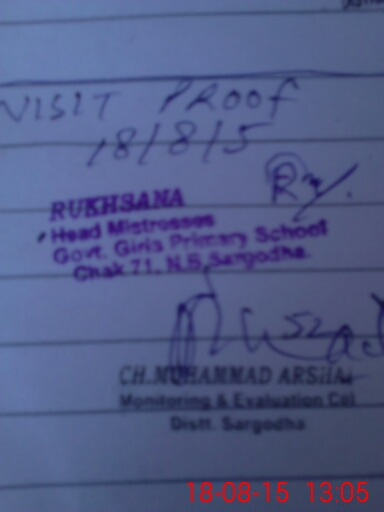 VISIT PROOF
18/8/15
RUKHSANA
Head Mistresses
Govt. Girls Primary School
Chak 71, N.B Sargodha.
CH.MUHAMMAD ARSHAD
Monitoring & Evaluation Cel
Distt. Sargodha
18-08-15 13:05